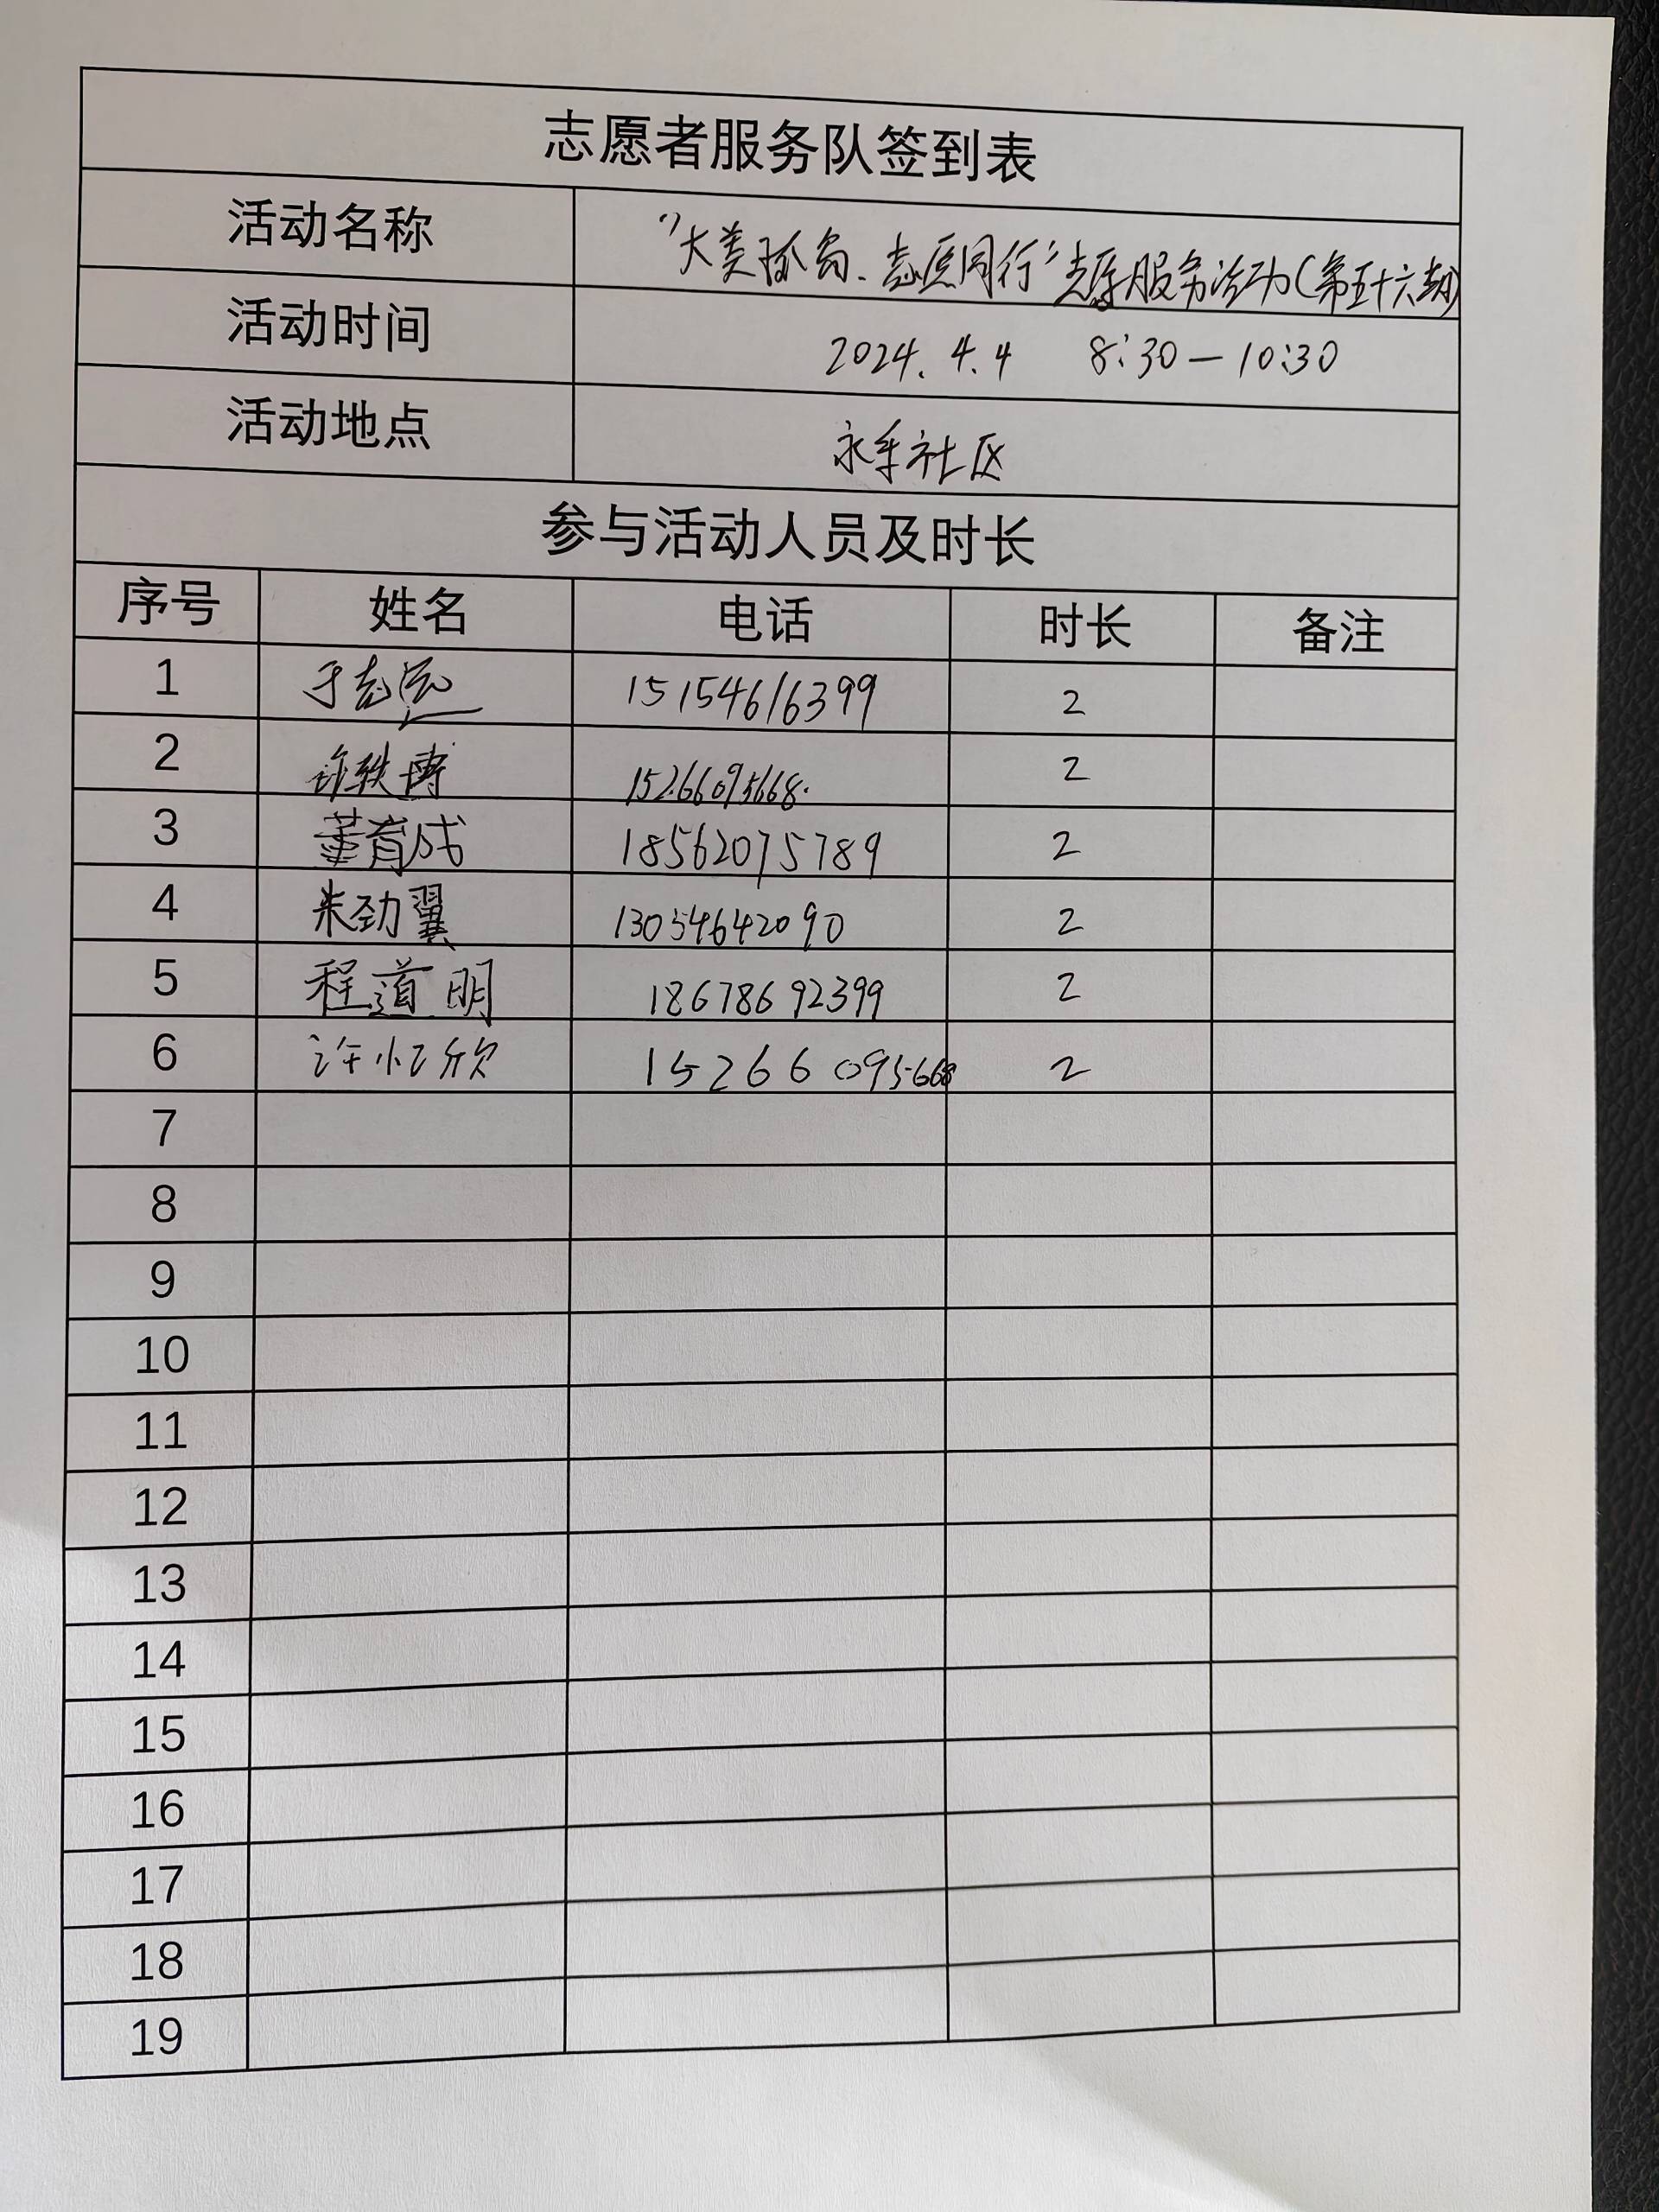 志愿者服务队签到表
活动名称 "大美孤岛、志愿同行"志愿服务活动(第五十六期)
活动时间 2024.4.4 8:30—10:30
活动地点 永乐社区
参与活动人员及时长
序号 姓名 电话 时长 备注
1 于志 15154616399 2
2 许轶博 15266095668. 2
3 董育成 18562075789 2
4 朱劲翼 13054642090 2
5 程道明 18678692399 2
6 许忆欣 15266095668 2
7
8
9
10
11
12
13
14
15
16
17
18
19